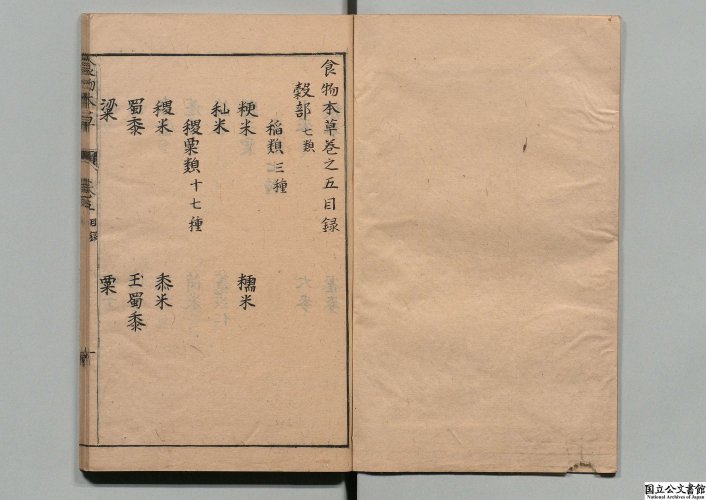 食物本草卷之五目録
穀部七類
稲類三種
粳米 糯米
秈米
稷粟類十七種
稷米 黍米
蜀黍 玉蜀黍
粱 粟
国立公文書館
National Archives of Japan